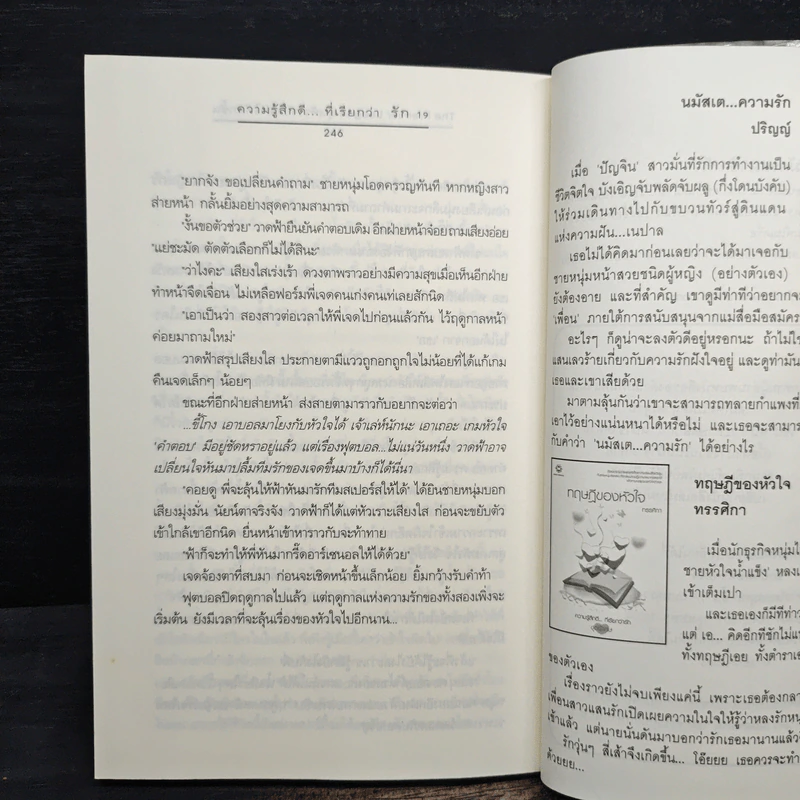 ความรู้สึกดี... ที่เรียกว่า รัก 19
246
"ยากจัง ขอเปลี่ยนคำถาม" ชายหนุ่มโอดครวญทันที หากหญิงสาว
ส่ายหน้า กลั้นยิ้มอย่างสุดความสามารถ
"งั้นขอตัวช่วย" วาดฟ้ายืนยันคำตอบเดิม อีกฝ่ายหน้าจ๋อย ถามเสียงอ่อย
"แย่ชะมัด ตัดตัวเลือกก็ไม่ได้สินะ"
"ว่าไงคะ" เสียงใสเร่งเร้า ดวงตาพราวอย่างมีความสุขเมื่อเห็นอีกฝ่าย
ทำหน้าจืดเจื่อน ไม่เหลือฟอร์มพี่เจดคนเก่งคนเท่เลยสักนิด
"เอาเป็นว่า สองสาวต่อเวลาให้พี่เจดไปก่อนแล้วกัน ไว้ฤดูกาลหน้า
ค่อยมาถามใหม่"
วาดฟ้าสรุปเสียงใส ประกายตามีแววถูกอกถูกใจไม่น้อยที่ได้แก้เกม
คืนเจดเล็กๆ น้อยๆ
ขณะที่อีกฝ่ายส่ายหน้า ส่งสายตามาราวกับอยากจะต่อว่า
...ขี้โกง เอาบอลมาโยงกับหัวใจได้ เจ้าเล่ห์นักนะ เอาเถอะ เกมหัวใจ
'คำตอบ' มีอยู่ชัดหราอยู่แล้ว แต่เรื่องฟุตบอล...ไม่แน่วันหนึ่ง วาดฟ้าอาจ
เปลี่ยนใจหันมาปลื้มทีมรักของเจดขึ้นมาบ้างก็ได้นี่นา
"คอยดู พี่จะลุ้นให้ฟ้าหันมารักทีมสเปอร์สให้ได้" ได้ยินชายหนุ่มบอก
เสียงมุ่งมั่น นัยน์ตาจริงจัง วาดฟ้าก็ได้แต่หัวเราะเสียงใส ก่อนจะขยับตัว
เข้าใกล้เขาอีกนิด ยื่นหน้าเข้าหาราวกับจะท้าทาย
"ฟ้าก็จะทำให้พี่หันมากรี๊ดอาร์เซนอลให้ได้ด้วย"
เจดจ้องตาที่สบมา ก่อนจะเชิดหน้าขึ้นเล็กน้อย ยิ้มกว้างรับคำท้า
ฟุตบอลปิดฤดูกาลไปแล้ว แต่ฤดูกาลแห่งความรักของทั้งสองเพิ่งจะ
เริ่มต้น ยังมีเวลาที่จะลุ้นเรื่องของหัวใจไปอีกนาน...
นมัสเต...ความรัก
ปริญญ์
เมื่อ 'ปัญจิน' สาวมั่นที่รักการทำงานเป็น
ชีวิตจิตใจ บังเอิญจับพลัดจับผลู (กึ่งโดนบังคับ)
ให้ร่วมเดินทางไปกับขบวนทัวร์สู่ดินแดน
แห่งความฝัน...เนปาล
เธอไม่ได้คิดมาก่อนเลยว่าจะได้มาเจอกับ
ชายหนุ่มหน้าสวยชนิดผู้หญิง (อย่างตัวเอง)
ยังต้องอาย และที่สำคัญ เขาดูมีท่าทีว่าอยากจะ
'เพื่อน' ภายใต้การสนับสนุนจากแม่สื่อมือสมัคร
อะไรๆ ก็ดูน่าจะลงตัวดีอยู่หรอกนะ ถ้าไม่ใช่
แสนเลวร้ายเกี่ยวกับความรักฝังใจอยู่ และดูท่าทำเ
เธอและเขาเสียด้วย
มาตามลุ้นกันว่าเขาจะสามารถทลายกำแพงที่
เอาไว้อย่างแน่นหนาได้หรือไม่ และเธอจะสามาร
กับคำว่า 'นมัสเต...ความรัก' ได้อย่างไร
ทฤษฎีของหัวใจ
ทรรศิกา
ความรู้สึกดี... ที่เรียกว่ารัก
ทฤษฎีของหัวใจ
ทรรศิกา
เมื่อนักธุรกิจหนุ่มไ
ชายหัวใจน้ำแข็ง' หลงเ
เข้าเต็มเปา
และเธอเองก็มีทีท่าว
แต่ เอ... คิดอีกทีชักไม่แน
ทั้งทฤษฎีเอย ทั้งตำราเอ
ของตัวเอง
เรื่องราวยังไม่จบเพียงแค่นี้ เพราะเธอต้องกลา
เพื่อนสาวแสนรักเปิดเผยความในใจให้รู้ว่าหลงรักหนุ
เข้าแล้ว แต่นายนั่นดันมาบอกว่ารักเธอมานานแล้วด้
รักวุ่นๆ สี่เส้าจึงเกิดขึ้น... โอ๊ยยย เธอควรจะทำ
ด้วยยย...